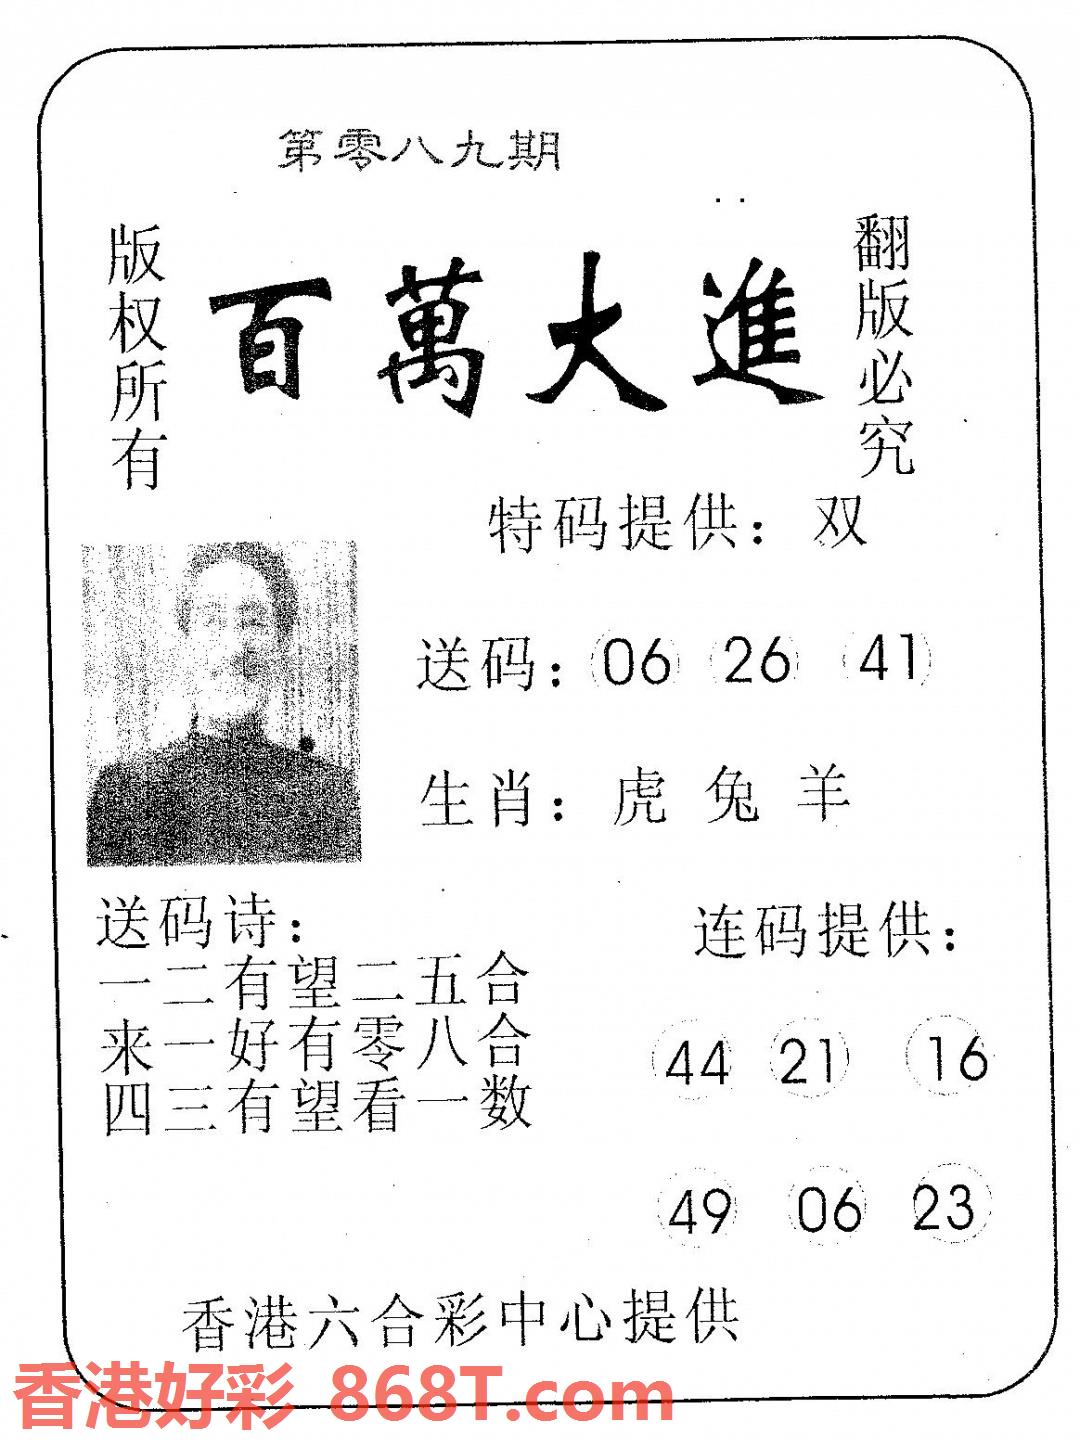 第零八九期
版权所有
百萬大進
翻版必究
特码提供：双
送码：06 26 41
生肖：虎 兔 羊
送码诗：
一二有望二五合
来一好有零八合
四三有望看一数
连码提供：
44 21 16
49 06 23
香港六合彩中心提供
香港好彩 868T.com